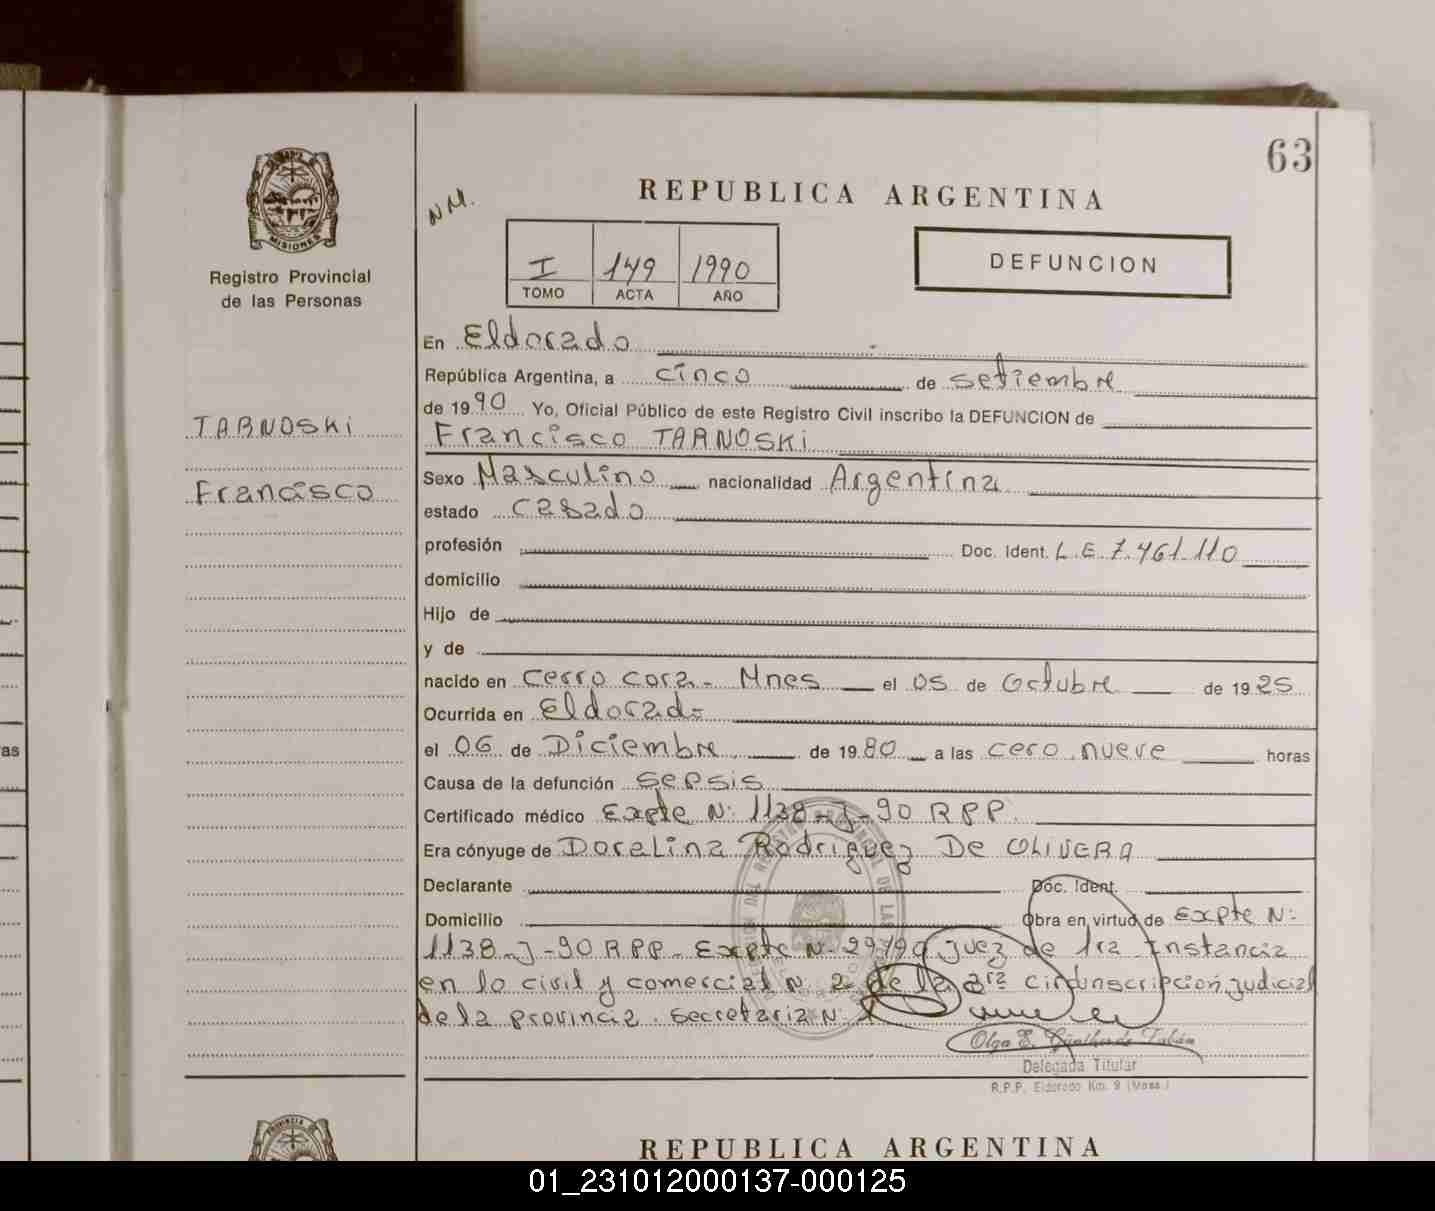 63
REPUBLICA ARGENTINA
N.M.
MISIONES
Registro Provincial
de las Personas
I 149 1990
TOMO ACTA AÑO
DEFUNCION
En Eldorado
República Argentina, a cinco de setiembre
de 1990 Yo, Oficial Público de este Registro Civil inscribo la DEFUNCION de
TARNOSKI
Francisco TARNOSKI
Sexo Masculino nacionalidad Argentina
Francisco
estado casado
profesión Doc. Ident. L.E. 7.461.110
domicilio
Hijo de
y de
nacido en Cerro cora - Mnes el 05 de Octubre de 1925
Ocurrida en Eldorado
el 06 de Diciembre de 1980 a las cero nueve horas
as
Causa de la defunción Sepsis
Certificado médico Expte N: 1138-J-90 RPP.
Era cónyuge de Doralina Rodriguez De OLIVERA
Declarante Doc. Ident.
Domicilio Obra en virtud de Expte N:
1138-J-90 RPP - Expte N- juez de 1ra Instancia
en lo civil y comercial N. 2 de la 3ra circunscripción judicial
de la provincia. Secretaria N: 1
Olga E. de Fabián
Delegada Titular
R.P.P. Eldorado Km. 9 (Mnes.)
REPUBLICA ARGENTINA
01_231012000137-000125